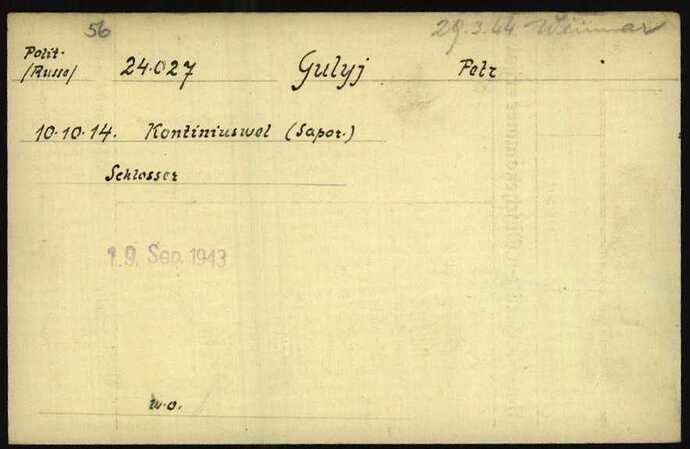 56 29.3.44 Weimar
Polit.
/Russe/ 24.027 Gulyj Petr
10.10.14. Kontiniuswol (Sapor.)
Schlosser
19. Sep. 1943
w.o.